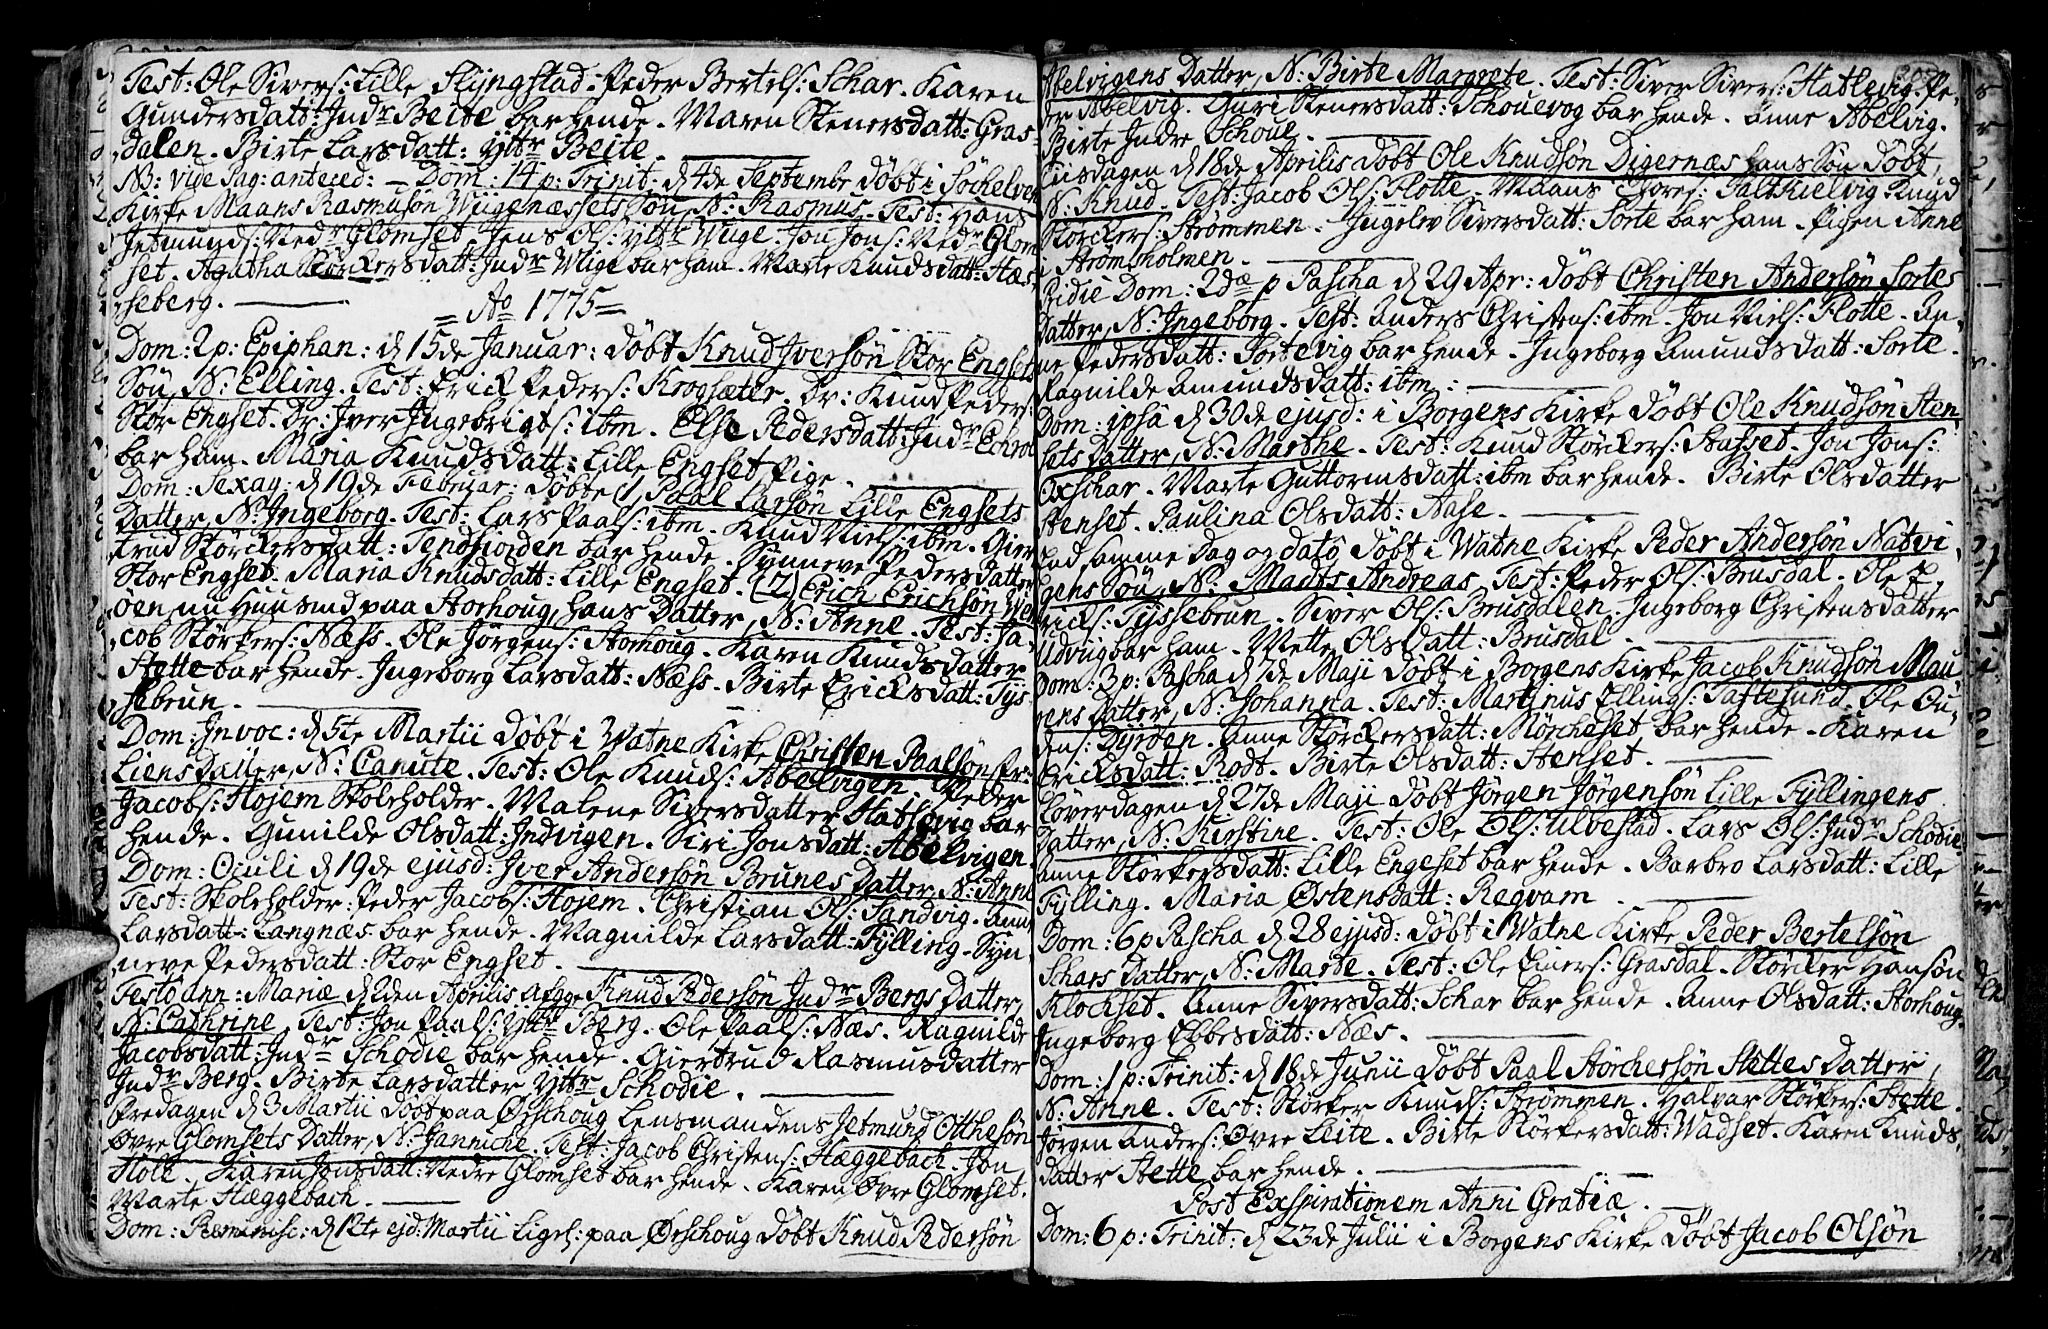 Test: Ole Sivers: Lille Slyngstad. Peder Bertels: Schar. Karen
Gundersdatt: Indr Beite bar hende. Maren Stenersdatt: Gras-
dalen. Birte Larsdatt: Yttr Beite.
NB: vide Pag: antered: Dom: 14 p: Trinit: d 4de Septembr døbt i Søchelven
Kirke Maans Rasmusøn Wugenæssets Søn, N: Rasmus. Test: Hans
Jetmunds: Nedr Glomset. Jens Ols: Yttr Wuge. Jon Jons: Nedr Glom
set. Agatha Størckersdatt: Indr Wuge bar ham. Marte Knudsdatt: Hæs-
seberg.
= Ao 1775 =
Dom: 2 p: Epiphan: d 15de Januar: døbt Knud Iversøn Stor Engsets
Søn, N: Elling. Test: Erick Peders: Krogsæter. Dr: Knud Peders:
Stor Engset. Dr: Iver Ingebrigts: ibm. Else Pedersdatt: Indr Echrol
bar ham. Maria Knudsdatt: Lille Engset Pige.
Dom: Sexag: d 19de Februar: døbte 1, Paal Larsøn Lille Engsets
Datter, N: Ingeborg. Test: Lars Paals: ibm. Knud Niels: ibm. Gier
trud Størckersdatt: Tendfiorden bar hende. Synneve Pedersdatter
Stor Engset. Maria Knudsdatt: Lille Engset. (2) Erich Erichsøn
øen, nu Huusmd paa Storhoug, hans Datter, N: Anne. Test: Ja-
cob Størkers: Næss. Ole Jørgens: Storhoug. Karen Knudsdatter
Stette bar hende. Ingeborg Larsdatt: Næss. Birte Ericksdatt: Tys
sebrun.
Dom: Invoc: d 5te Martii døbt i Watne Kirke Christen Paalsøn
Liens Datter, N: Canute. Test: Ole Knuds: Abelvigen. Peder
Jacobs: Hojem Skoleholder. Malene Siversdatter Hatlevig bar
hende. Gunilde Olsdatt: Indvigen. Siri Jonsdatt: Abelvigen.
Dom: Oculi d 19de ejusd: Iver Andersøn Brunes Datter, N: Anne
Test: Skoleholder Peder Jacobs: Hojem. Christian Ols: Sandvig. Anne
Larsdatt: Langnæs bar hende. Magnilde Larsdatt: Fylling. Syn
neve Pedersdatt: Stor Engset.
Festo ann: Mariæ d 2den Aprilis afgge Knud Pedersøn Indr Bergs Datter,
N: Cathrine. Test: Jon Paals: Yttr Berg. Ole Paals: Næs. Ragnilde
Jacobsdatt: Indr Schodie bar hende. Giertrud Rasmusdatter
Indr Berg. Birte Larsdatter Yttr Schodie.
Fredagen d 3 Martii døbt paa Ørschoug Lensmandens Jetmund Otthesøn
Øvre Glomsets Datter, N: Janniche. Test: Jacob Christens: Hæggebach. Jon
Holt. Karen Jonsdatt: Nedre Glomset bar hende. Karen Øvre Glomset.
Marte Hæggebach.
Dom: Reminisc: d 12te ejd: Martii ligel: paa Ørschoug døbt Knud Pedersøn
Abelvigens Datter, N: Birte Margrete. Test: Siver Sivers: Hatlevig. Pe-
der Abelvig. Guri Stenersdatt: Schouevog bar hende. Anne Abelvig.
Birte Indre Schoue.
Tiisdagen d 18de Aprilis døbt Ole Knudsøn Digernæs hans Søn døbt,
N: Knud. Test: Jacob Ols: Flotte. Maans Thores: Saltkielvig. Knud
Størckers: Strømmen. Ingelev Siversdatt: Sorte bar ham. Pigen Anne
i Strømsholmen.
Pridie Dom: 2da p Pascha d 29 Apr: døbt Christen Andersøn Sortes
Datter, N: Ingeborg. Test: Anders Christens: ibm. Jon Niels: Flotte. An-
ne Pedersdatt: Sortevig bar hende. Ingeborg Amundsdatt: Sorte.
Ragnilde Amundsdatt: ibm:
Dom: ipsa d 30de ejusd: i Borgens Kirke døbt Ole Knudsøn Sten
sets Datter, N: Marthe. Test: Knud Størckers: Stafset. Jon Jons:
Oxschar. Marte Guttormsdatt: ibm bar hende. Birte Olsdatter
Stenset. Paulina Olsdatt: Aase.
End samme Dag og dato døbt i Watne Kirke Peder Andersøn Natvi
gens Søn, N: Madts Andreas. Test: Peder Ols: Brusdal. Ole E-
ricks: Tyssebrun. Siver Ols: Brusdalen. Ingeborg Christensdatter
Udvug bar ham. Mette Olsdatt: Brusdal.
Dom: 3 p: Pascha d 7de Maji døbt i Borgens Kirke Jacob Knudsøn Mau
gens Datter, N: Johanna. Test: Martinus Ellings: Taftesund. Ole Ou-
dens: Dyrøen. Anne Størckersdatt: Mørcheset bar hende. Karen
Ericksdatt: Rodt. Birte Olsdatt: Stenset.
Løverdagen d 27de Maji døbt Jørgen Jørgensøn Lille Fyllingens
Datter, N: Kirstine. Test: Ole Ols: Ulvestad. Lars Ols: Indr Schodie:
Anne Størkersdatt: Lille Engeset bar hende. Barbro Larsdatt: Lille
Fylling. Maria Østensdatt: Regvam
Dom: 6 p Pascha d 28 ejusd: døbt i Watne Kirke Peder Bertelsøn
Schars Datter, N: Marte. Test: Ole Einers: Grasdal. Størcker Hansøn
Klockset. Anne Siversdatt: Schar bar hende. Anne Olsdatt: Storhoug.
Ingeborg Ebbesdatt: Næs.
Dom: 1 p: Trinit: d 18de Junii døbt Paal Størchersøn Stettes Datter,
N: Anne. Test: Størker Knuds: Strømmen. Halvar Størkers: Stette.
Jørgen Anders: Øvre Leite. Birte Størkersdatt: Wadset. Karen Knuds
datter Stette bar hende.
Post Exspirationem Anni Gratiæ.
Dom: 6 p: Trinit: d 23de Julii i Borgens Kirke døbt Jacob Olsøn